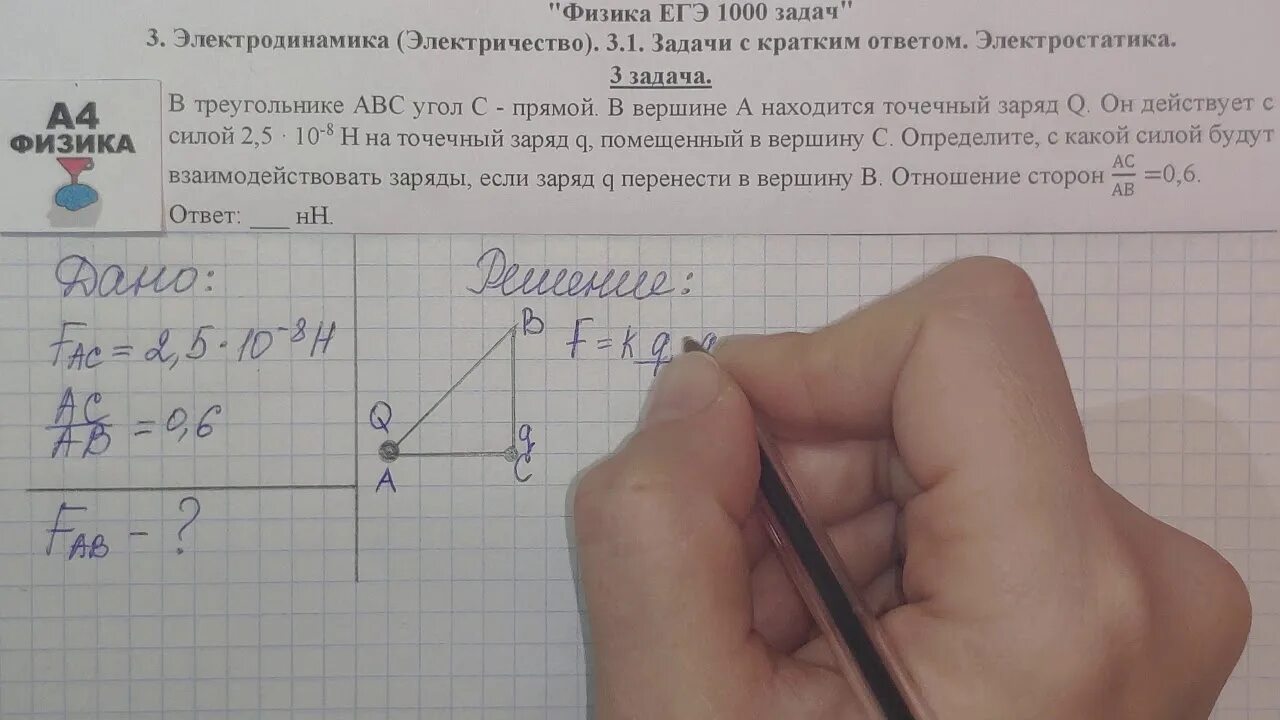 "Физика ЕГЭ 1000 задач"
3. Электродинамика (Электричество). 3.1. Задачи с кратким ответом. Электростатика.
3 задача.
А4
ФИЗИКА
В треугольнике АВС угол С - прямой. В вершине А находится точечный заряд Q. Он действует с
силой 2,5 · 10⁻⁸ Н на точечный заряд q, помещенный в вершину С. Определите, с какой силой будут
взаимодействовать заряды, если заряд q перенести в вершину В. Отношение сторон AC/AB =0,6.
Ответ: ___ нН.
Дано:
F_AC = 2,5 · 10⁻⁸ Н
AC/AB = 0,6
F_AB - ?
Решение:
B
Q
A
q
C
F = k q